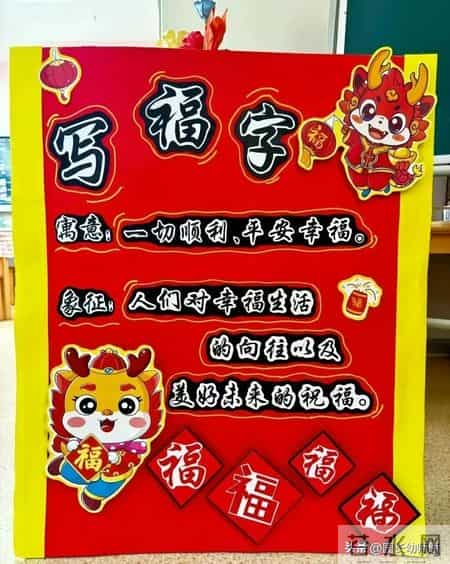 写福字
福
寓意:一切顺利、平安幸福。
象征:人们对幸福生活
的向往以及
美好未来的祝福。
福
福
福
福
福